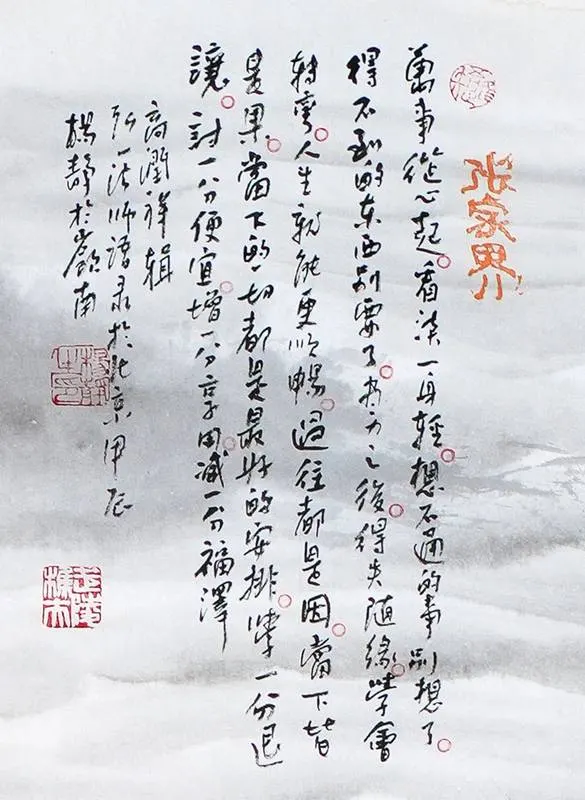 张家界
萬事從心起。看淡一身輕。想不通的事别想了。
得不到的东西别要了。尽力之後。得失随緣。学會
轉彎。人生就能更顺暢。過往都是因。當下皆
是果。當下的一切都是最好的安排。学一分退
讓。討一分便宜。增一分享用。減一分福澤
高潤祥辑
弘一法师語录於北京甲辰
楊静於嶺南